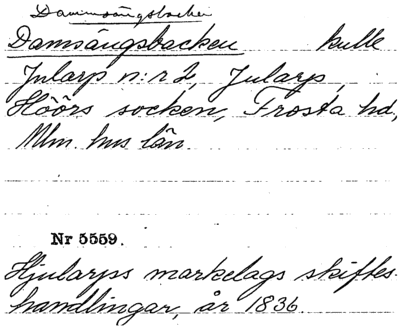 Dammsångsbacken
Damsångsbacken kulle
Jularp n:r 2, Jularp,
Höörs socken, Frosta hd,
Mlm. hus län.
Nr 5559.
Hjularps markelags skiftes-
handlingar, år 1836.